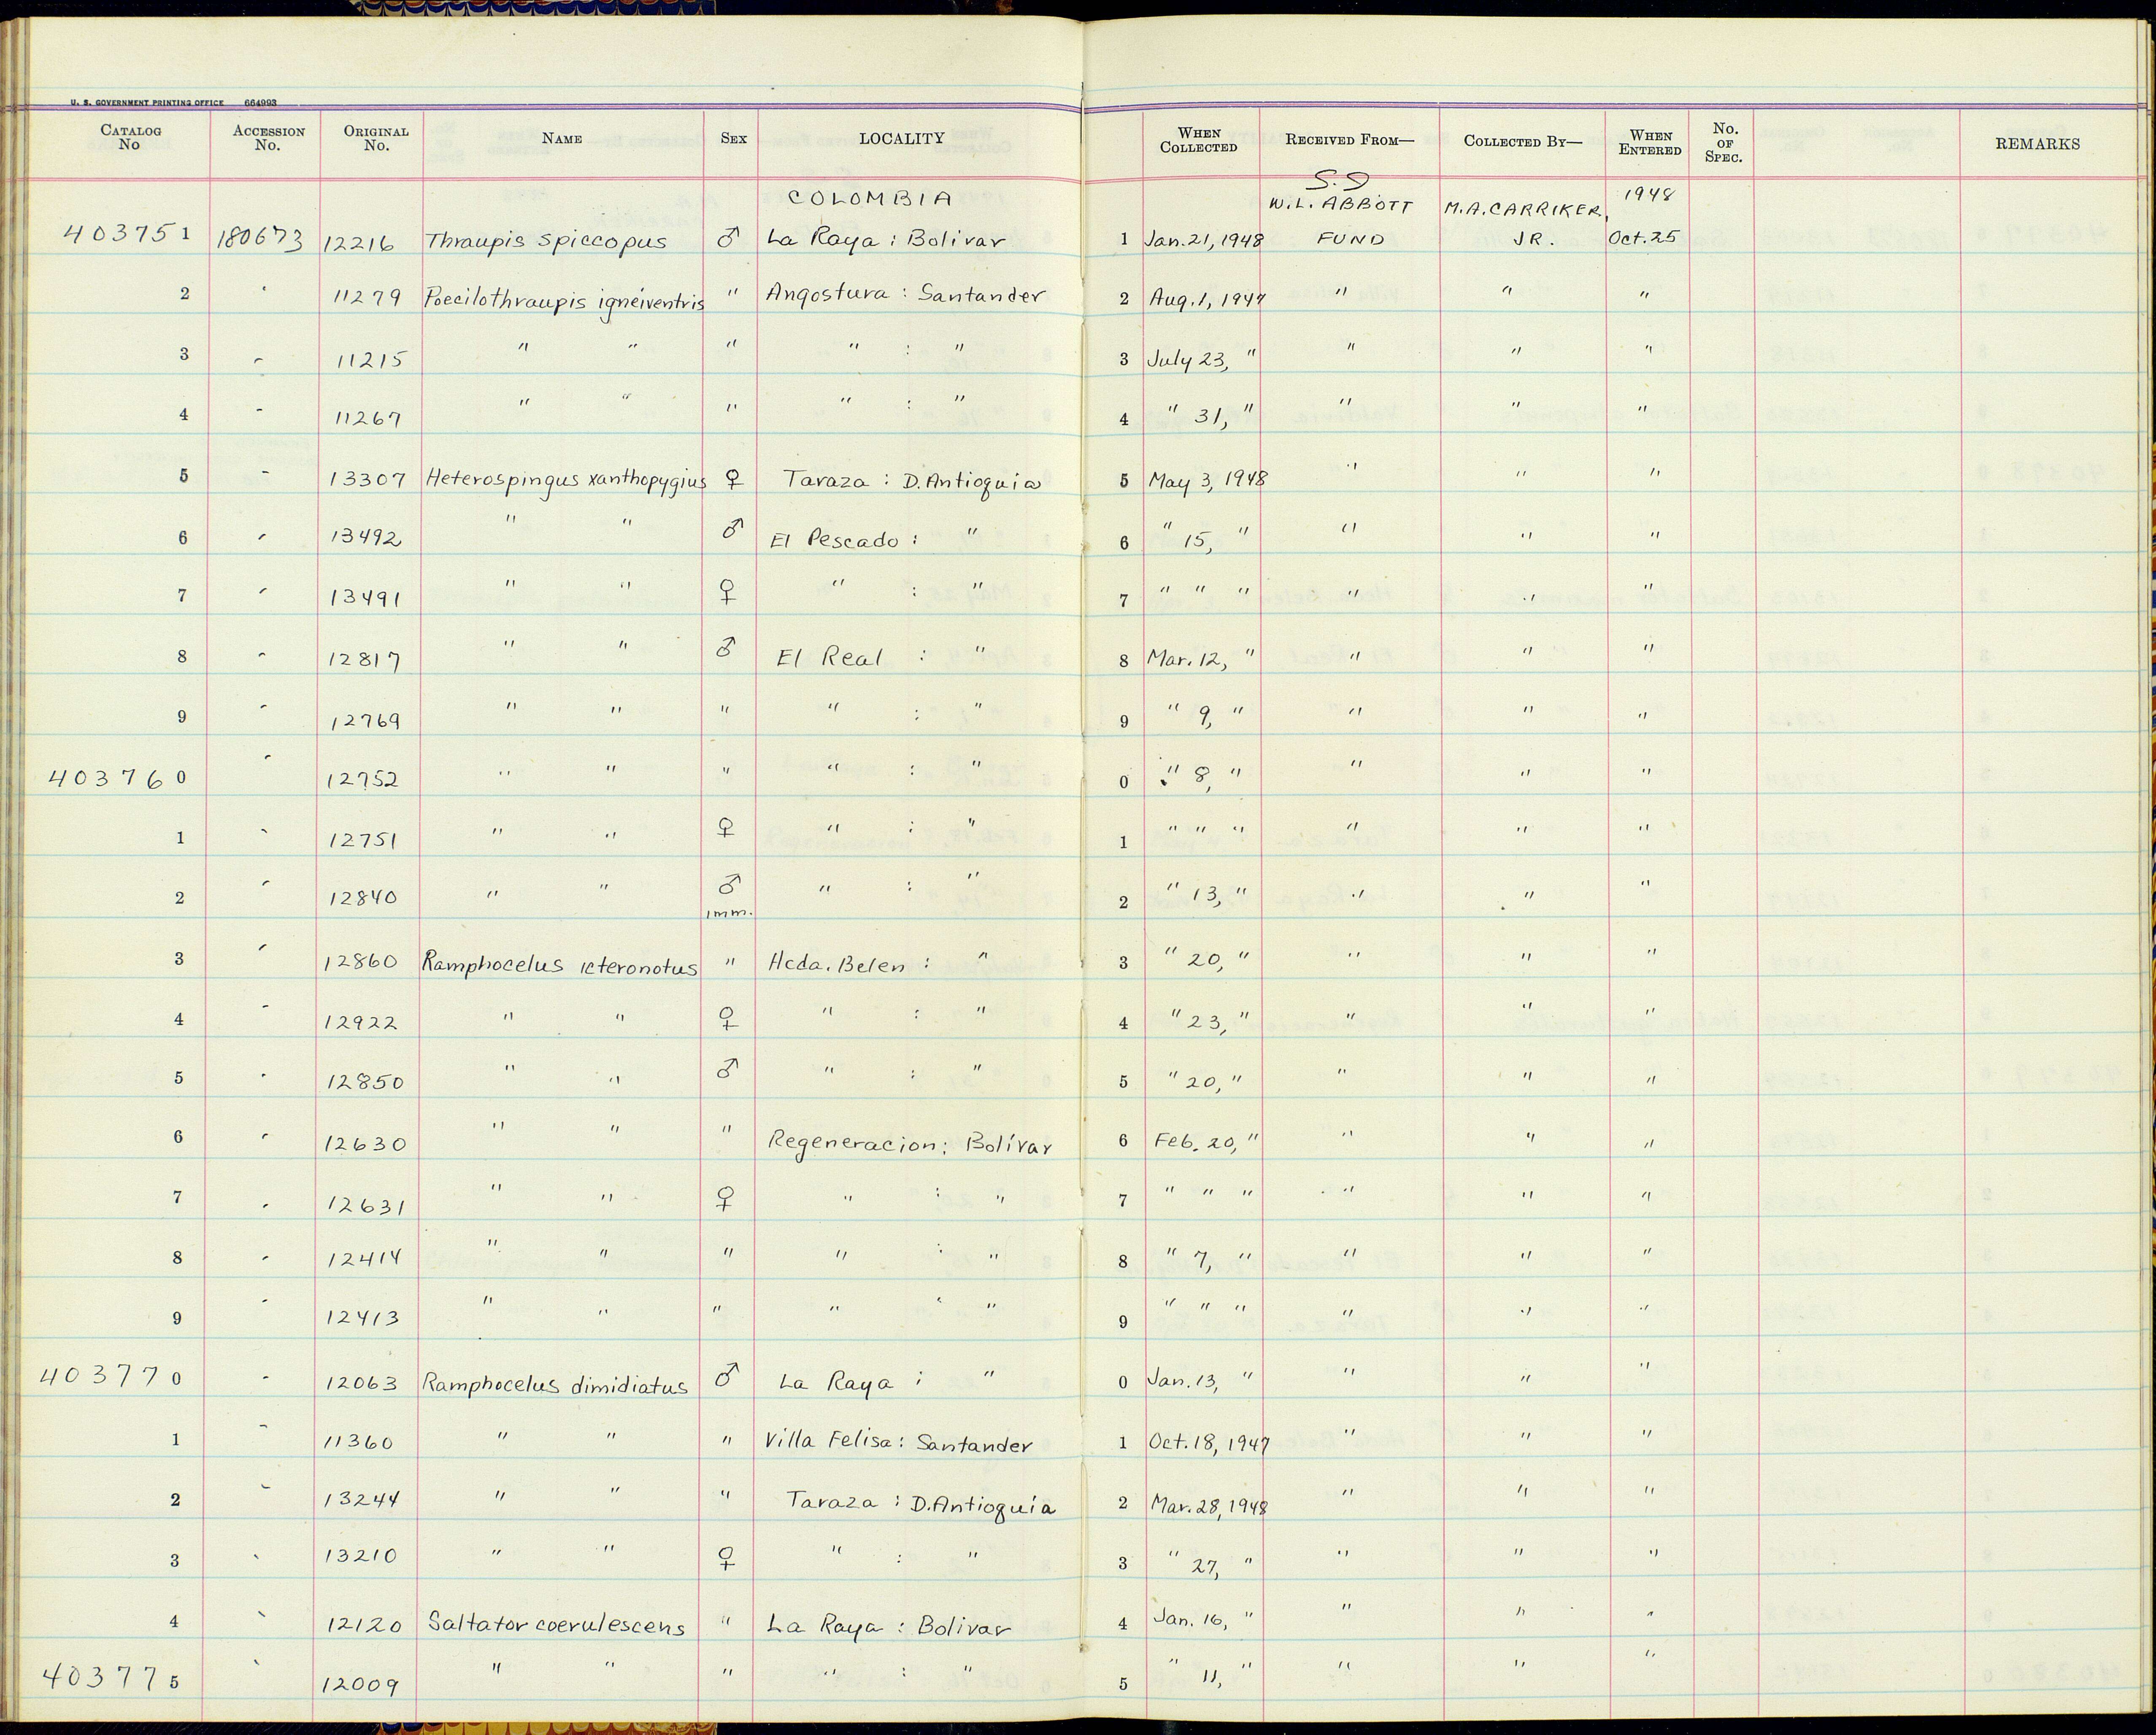 U. S. GOVERNMENT PRINTING OFFICE 664993
CATALOG No ACCESSION No. ORIGINAL No. NAME SEX LOCALITY WHEN COLLECTED RECEIVED FROM— COLLECTED BY— WHEN ENTERED No. OF SPEC. REMARKS
COLOMBIA S.D W.L. ABBOTT M.A. CARRIKER, 1948
403751 180673 12216 Thraupis spiccopus ♂ La Raya : Bolivar 1 Jan. 21, 1948 FUND JR. Oct. 25
2 " 11279 Poecilothraupis igneiventris " Angostura : Santander 2 Aug. 1, 1947 " " "
3 " 11215 " " " " : " 3 July 23, " " " "
4 " 11267 " " " " : " 4 " 31, " " " "
5 " 13307 Heterospingus xanthopygius ♀ Taraza : D. Antioquia 5 May 3, 1948 " " "
6 " 13492 " " ♂ El Pescado : " 6 " 15, " " " "
7 " 13491 " " ♀ " : " 7 " " " " " "
8 " 12817 " " ♂ El Real : " 8 Mar. 12, " " " "
9 " 12769 " " " " : " 9 " 9, " " " "
403760 " 12752 " " " " : " 0 " 8, " " " "
1 " 12751 " " ♀ " : " 1 " " " " " "
2 " 12840 " " ♂ imm. " : " 2 " 13, " " " "
3 " 12860 Ramphocelus icteronotus " Hcda. Belen : " 3 " 20, " " " "
4 " 12922 " " ♀ " : " 4 " 23, " " " "
5 " 12850 " " ♂ " : " 5 " 20, " " " "
6 " 12630 " " " Regeneracion : Bolívar 6 Feb. 20, " " " "
7 " 12631 " " ♀ " : " 7 " " " " " "
8 " 12414 " " " " : " 8 " 7, " " " "
9 " 12413 " " " " : " 9 " " " " " "
403770 " 12063 Ramphocelus dimidiatus ♂ La Raya : " 0 Jan. 13, " " " "
1 " 11360 " " " Villa Felisa : Santander 1 Oct. 18, 1947 " " "
2 " 13244 " " " Taraza : D. Antioquia 2 Mar. 28, 1948 " " "
3 " 13210 " " ♀ " : " 3 " 27, " " " "
4 " 12120 Saltator coerulescens " La Raya : Bolivar 4 Jan. 16, " " " "
403775 " 12009 " " " " : " 5 " 11, " " " "